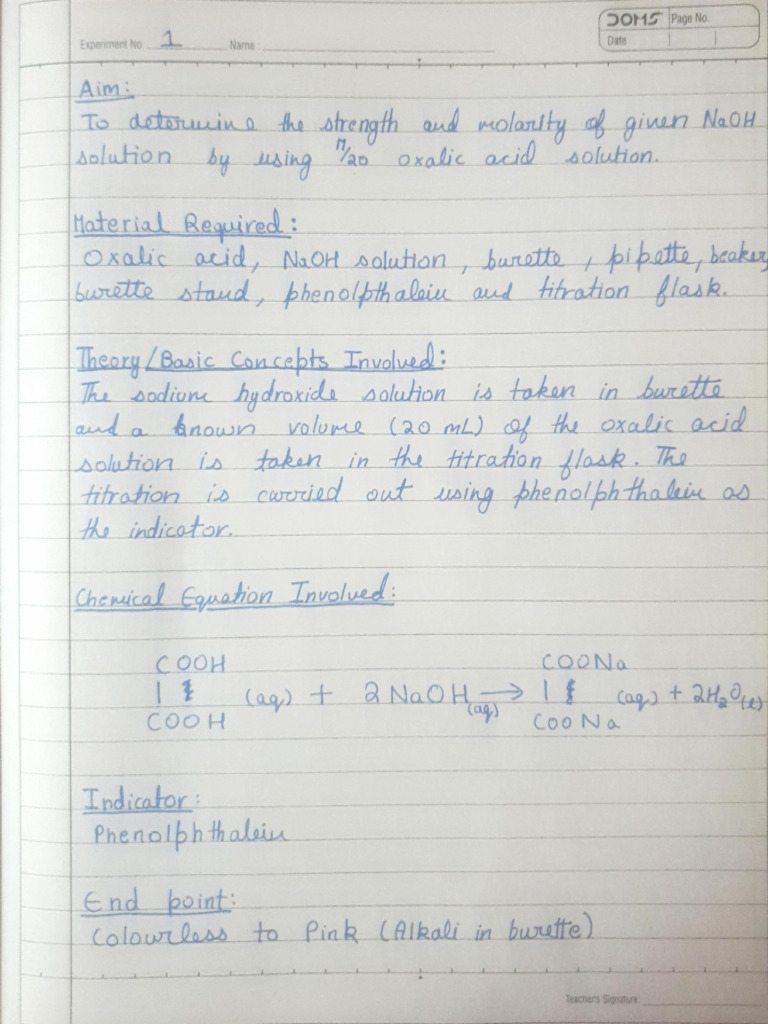 DOMS Page No.
Date
Experiment No. 1 Name:
Aim:
To determine the strength and molarity of given NaOH
solution by using M/20 oxalic acid solution.
Material Required:
Oxalic acid, NaOH solution, burette, pipette, beaker,
burette stand, phenolpthalein and titration flask.
Theory/Basic Concepts Involved:
The sodium hydroxide solution is taken in burette
and a known volume (20 mL) of the oxalic acid
solution is taken in the titration flask. The
titration is carried out using phenolphthalein as
the indicator.
Chemical Equation Involved:
COOH COONa
| (aq) + 2NaOH(aq) → | (aq) + 2H₂O(l)
COOH COONa
Indicator:
Phenolphthalein
End point:
Colourless to Pink (Alkali in burette)
Teacher's Signature